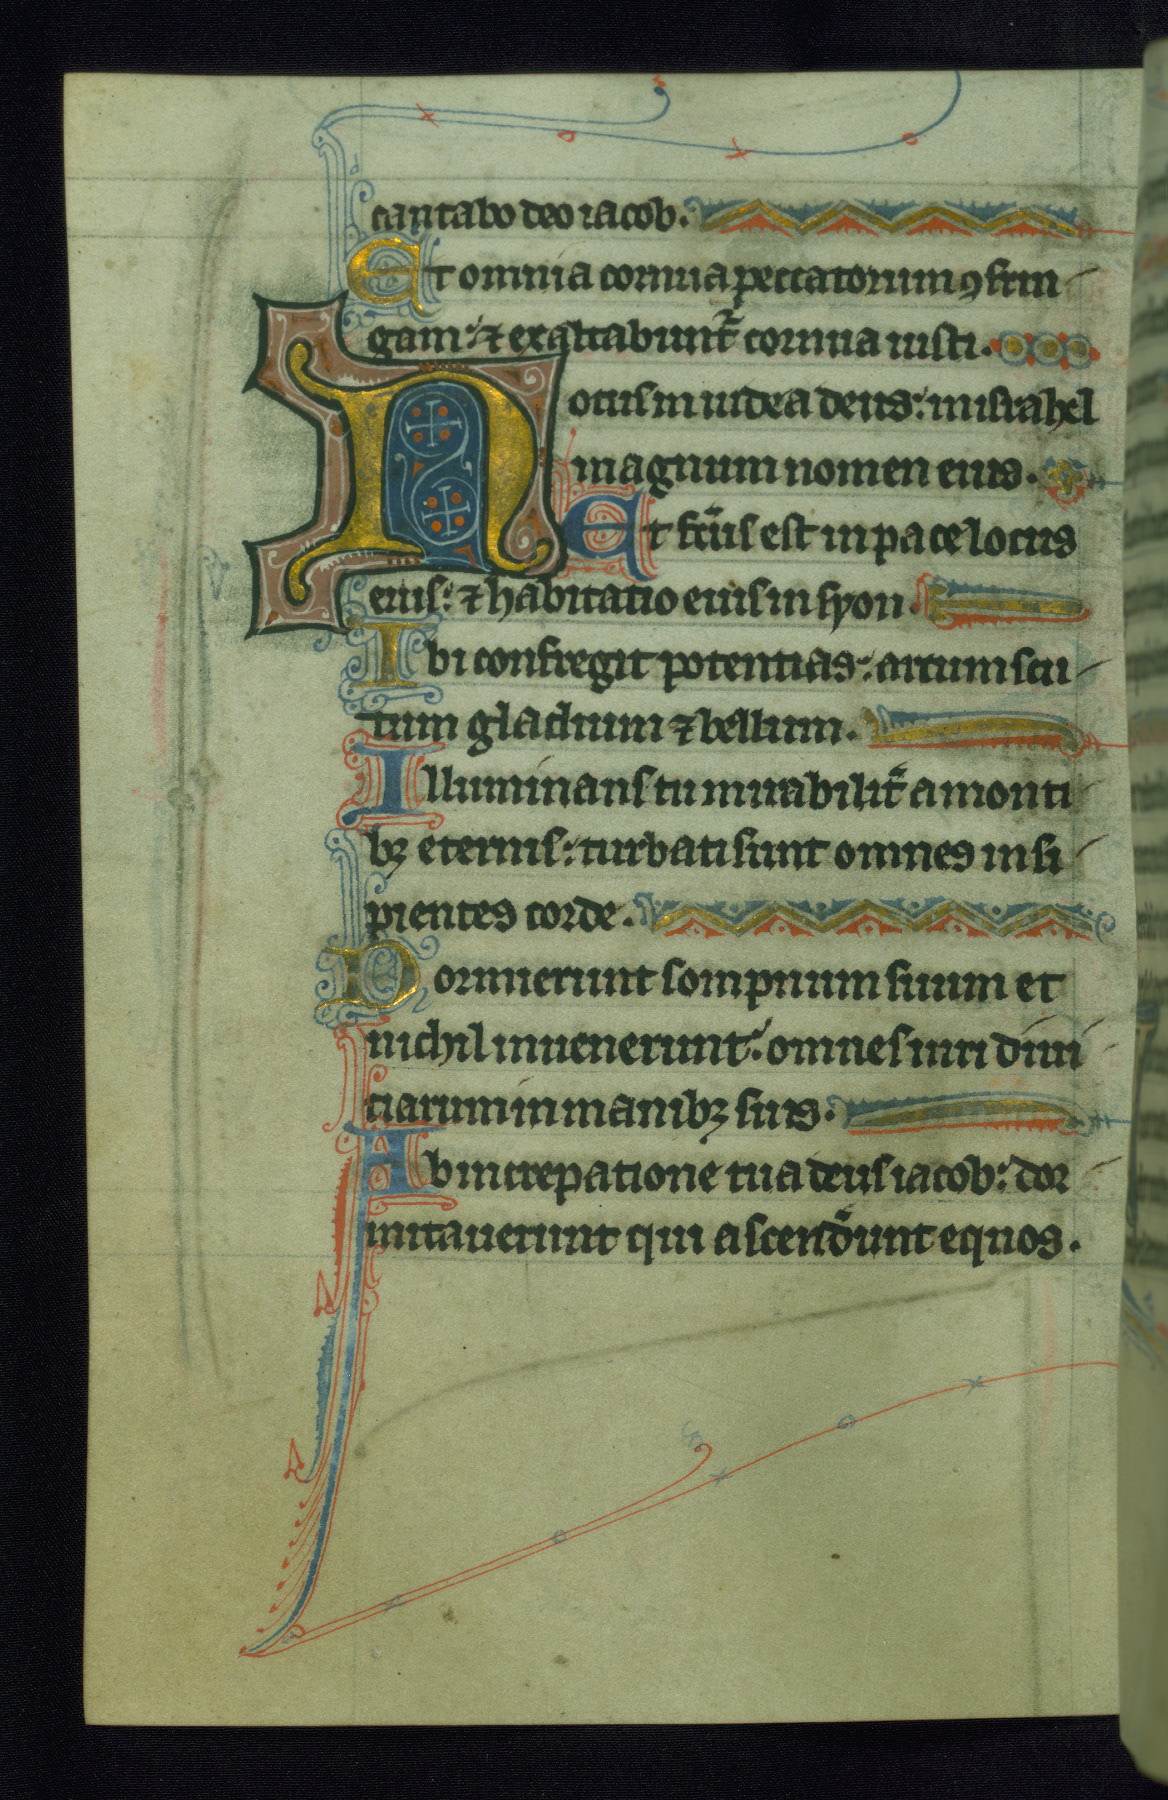 cantabo deo iacob.
Et omnia cornua peccatorum ꝯfrin
gam: ⁊ exaltabunt᷑ cornua iusti.
Notus in iudea deus: in israhel
magnum nomen eius.
Et fc̄us est in pace locus
eius: ⁊ habitatio eius in syon.
Ibi confregit potentias: arcum scu
tum gladium ⁊ bellum.
Illuminans tu mirabilit᷑ a monti
bꝫ eternis: turbati sunt omnes insi
pientes corde.
Dormierunt sompnum suum et
nichil inuenerunt: omnes uiri diui
tiarum in manibꝫ suis.
Ab increpatione tua deus iacob: dor
mitauerunt qui ascend᷑unt equos.